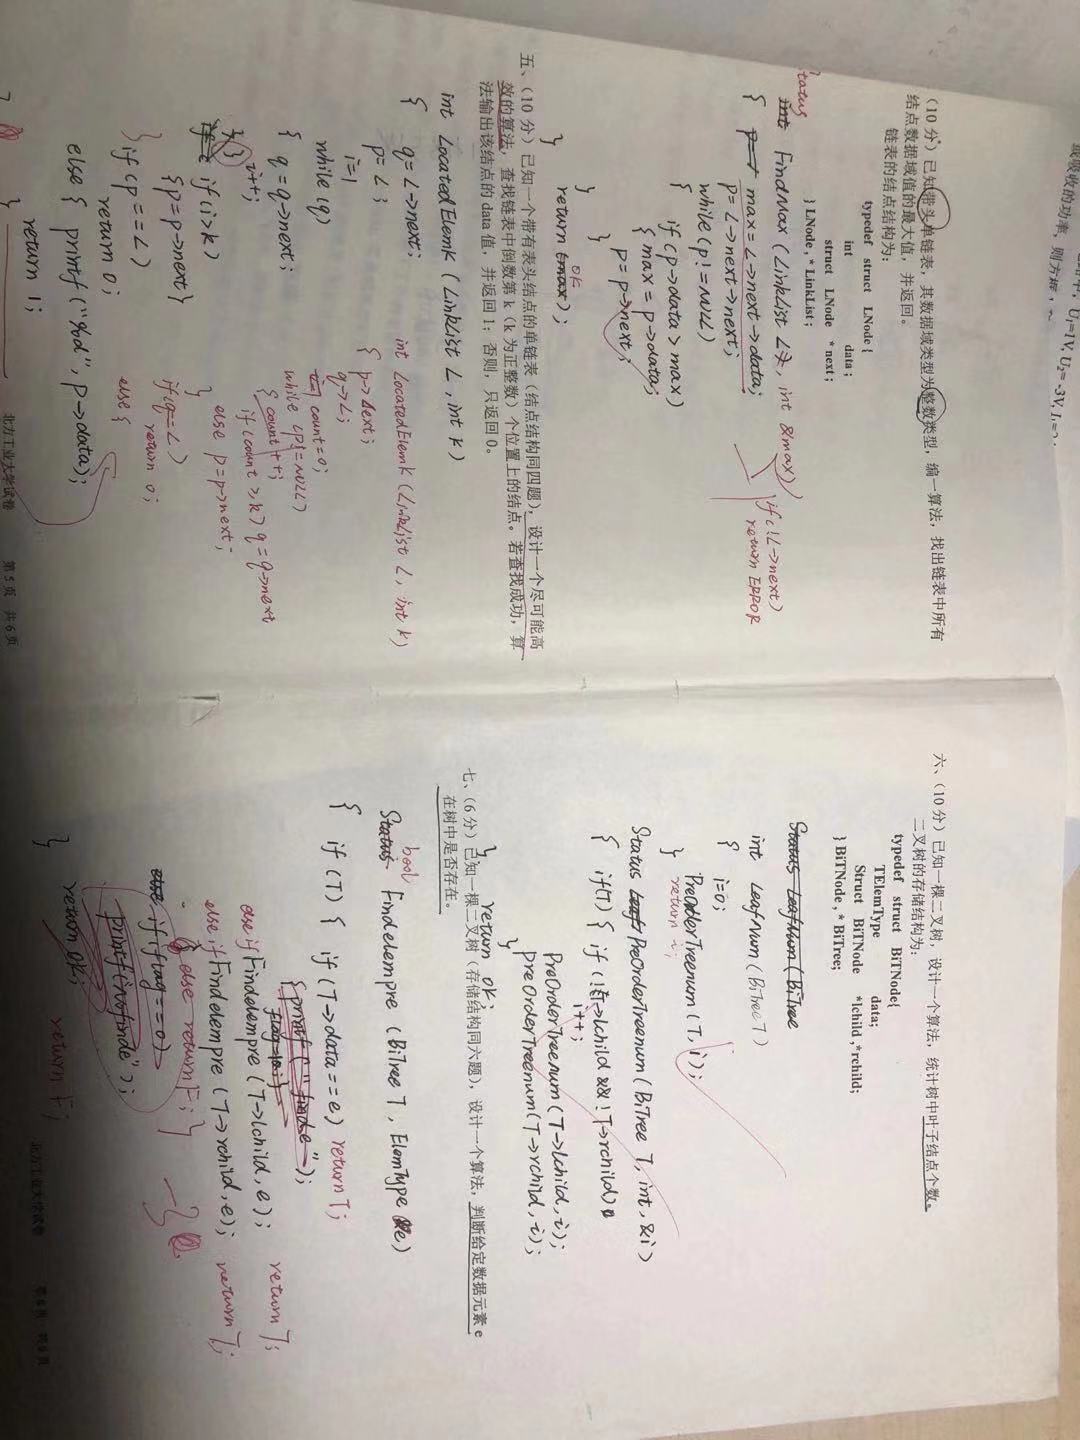 U₁=1V, U₂= -3V, I₁=2
或吸收的功率，则方框
(10 分) 已知带头单链表，其数据域类型为整数类型，编一算法，找出链表中所有
结点数据域值的最大值，并返回。
链表的结点结构为：
typedef struct LNode {
int data ;
struct LNode * next ;
} LNode , * LinkList ;
Status
int FindMax (LinkList L, int &max)
if(!L->next)
return ERROR
{ max = L->next->data;
p= L->next->next;
while (p!=NULL)
{ if (p->data > max)
{ max = p->data;
p = p->next;
}
}
OK
return (max);
}
五、(10 分) 已知一个带有表头结点的单链表（结点结构同四题），设计一个尽可能高
效的算法，查找链表中倒数第 k（k 为正整数）个位置上的结点。若查找成功，算
法输出该结点的 data 值，并返回 1；否则，只返回 0。
int LocatedElemK (LinkList L, int k)
{ q= L->next;
p= L;
i=1
while (q)
{ q=q->next;
i++;
}
if (i>k)
{p=p->next}
} if (p==L)
return 0;
else { printf ("%d", p->data);
return 1;
}
int LocatedElemK (LinkList L, int k)
{
q->L;
count=0;
while (p!=NULL)
{ count++;
if (count >k) q=q->next
else p=p->next;
}
if (q==L)
return 0;
else {
北方工业大学试卷 第 5 页 共 6 页
六、(10 分) 已知一棵二叉树，设计一个算法，统计树中叶子结点个数。
二叉树的存储结构为：
typedef struct BiTNode{
TElemType data;
Struct BiTNode *lchild ,*rchild;
} BiTNode , * BiTree;
Status LeafNum (BiTree
int LeafNum (BiTree T)
{ i=0;
PreOrderTreenum (T, i);
} return i;
Status Leaf PreOrderTreenum (BiTree T, int, &i)
{ if(T) { if (!T->lchild && !T->rchild)
i++;
PreOrderTreenum (T->lchild, i);
preOrderTreenum (T->rchild, i);
}
} return OK;
七、(6 分) 已知一棵二叉树（存储结构同六题），设计一个算法，判断给定数据元素 e
在树中是否存在。
bool
Status Findelempre (BiTree T, ElemType e)
{ if (T) { if (T->data == e) return T;
{printf ("finde");
else if Findelempre (T->lchild, e); return T;
else if Findelempre (T->rchild, e); return T;
else return F; }
-3
else if (flag==0)
printf("Nofinde");
return OK;
} return F;
北方工业大学试卷 第 6 页 共 6 页